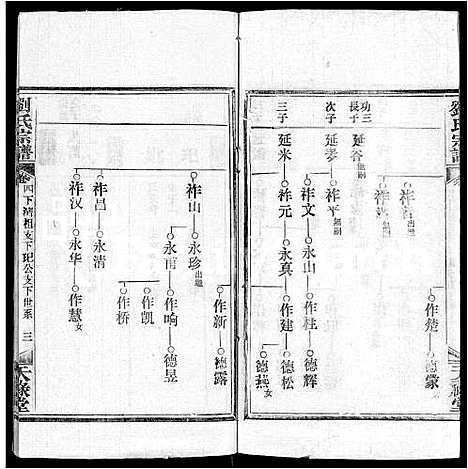 劉氏宗譜
功三
長子
延谷
無嗣
次子
延夢
祚平
無嗣
三子
延米
祚文
永山
作柱
德輝
祚元
永真
作建
德松
德燕
女
出繼
作楚
德蒙
天祿堂
劉氏宗譜
卷四下
清相支下玘公支下世系
三
天祿堂
祚山
永珍
出繼
作新
德露
永甫
作响
德昱
作凯
作桥
祚昌
永清
祚汉
永华
作慧
女